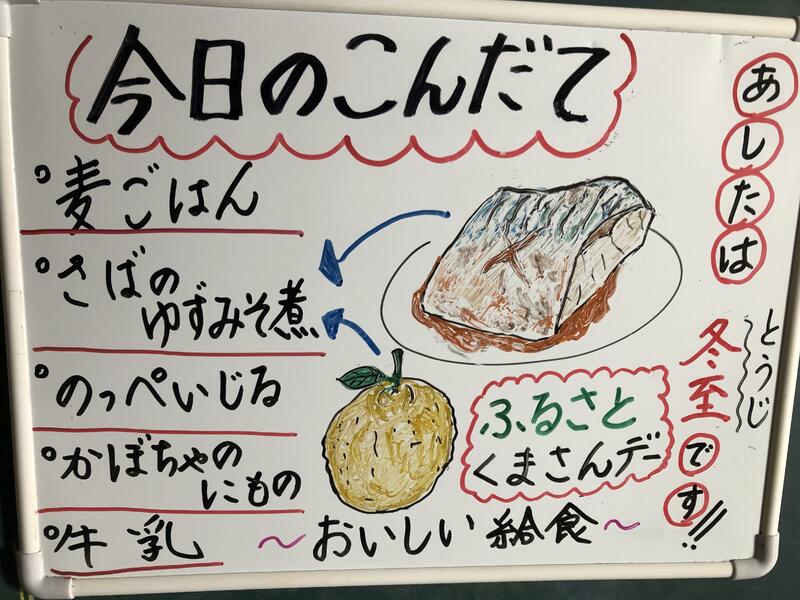 今日のこんだて
麦ごはん
さばの
ゆずみそ煮
のっぺいじる
かぼちゃの
にもの
牛乳
ふるさと
くまさんデー
~おいしい給食~
あしたは
冬至です!!
とうじ